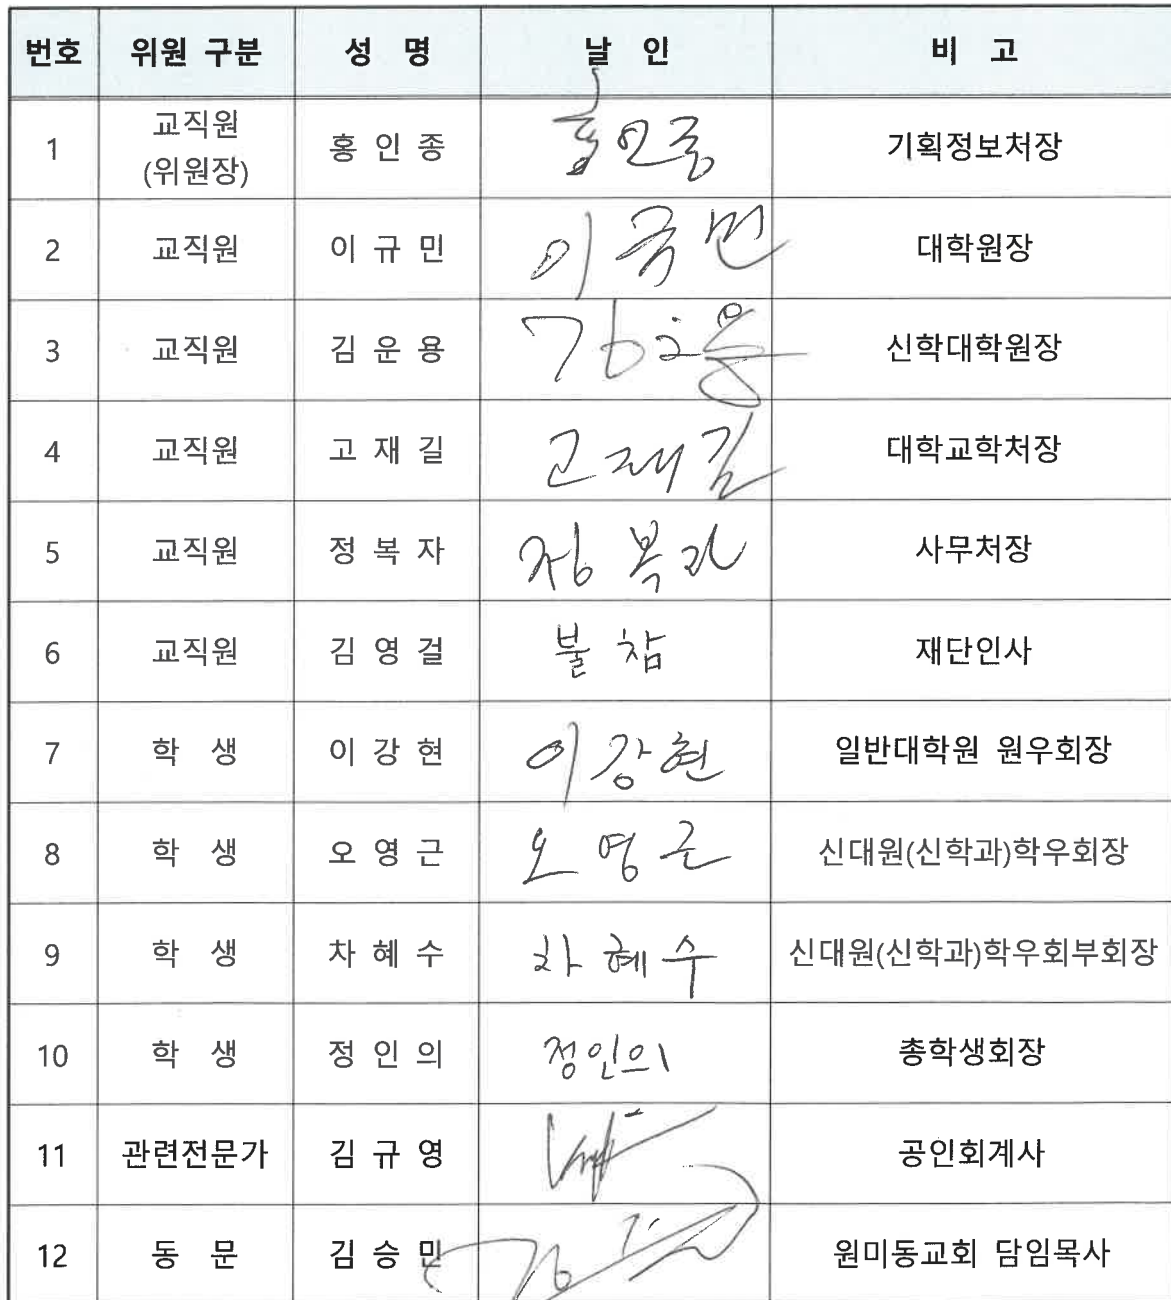 번호 위원 구분 성 명 날 인 비 고
1 교직원 (위원장) 홍 인 종 홍인종 기획정보처장
2 교직원 이 규 민 이규민 대학원장
3 교직원 김 운 용 김운용 신학대학원장
4 교직원 고 재 길 고재길 대학교학처장
5 교직원 정 복 자 정복자 사무처장
6 교직원 김 영 걸 불참 재단인사
7 학 생 이 강 현 이강현 일반대학원 원우회장
8 학 생 오 영 근 오영근 신대원(신학과)학우회장
9 학 생 차 혜 수 차혜수 신대원(신학과)학우회부회장
10 학 생 정 인 의 정인의 총학생회장
11 관련전문가 김 규 영 공인회계사
12 동 문 김 승 민 원미동교회 담임목사